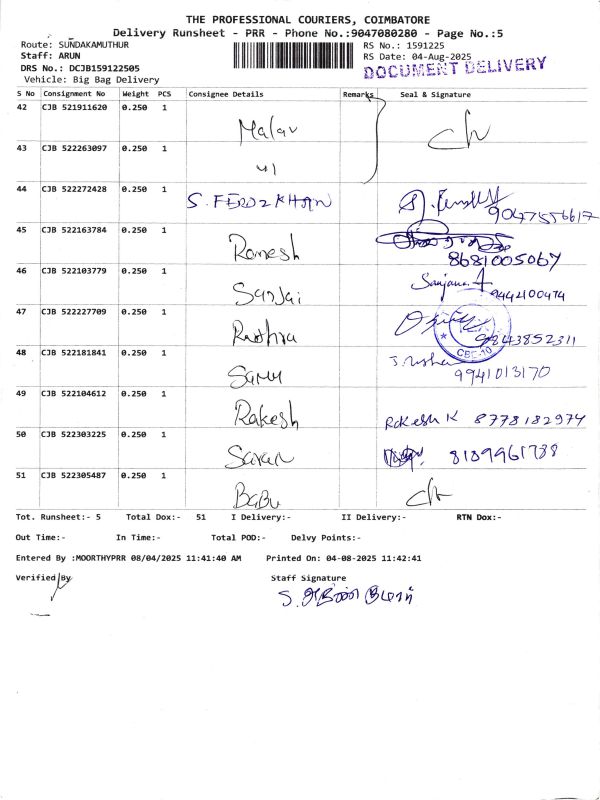 THE PROFESSIONAL COURIERS, COIMBATORE
Delivery Runsheet - PRR - Phone No.:9047080280 - Page No.:5
Route: SUNDAKAMUTHUR
RS No.: 1591225
Staff: ARUN
RS Date: 04-Aug-2025
DRS No.: DCJB159122505
DOCUMENT DELIVERY
Vehicle: Big Bag Delivery
S No Consignment No Weight PCS Consignee Details Remarks Seal & Signature
42 CJB 521911620 0.250 1
Malar
43 CJB 522263097 0.250 1
41
44 CJB 522272428 0.250 1 S. FEROZKHAN
9047556617
45 CJB 522163784 0.250 1 Ramesh
8681005067
46 CJB 522103779 0.250 1 Sanjai Sanjana. A
9442100474
47 CJB 522227709 0.250 1 Rudhra 9843852311
CBE-10
48 CJB 522181841 0.250 1
9941013170
49 CJB 522104612 0.250 1 Rakesh Rakesh K 8778182974
50 CJB 522303225 0.250 1 Saran 8189961788
51 CJB 522305487 0.250 1 Babu
Tot. Runsheet:- 5 Total Dox:- 51 I Delivery:- II Delivery:- RTN Dox:-
Out Time:- In Time:- Total POD:- Delvy Points:-
Entered By :MOORTHYPRR 08/04/2025 11:41:40 AM Printed On: 04-08-2025 11:42:41
Verified By Staff Signature